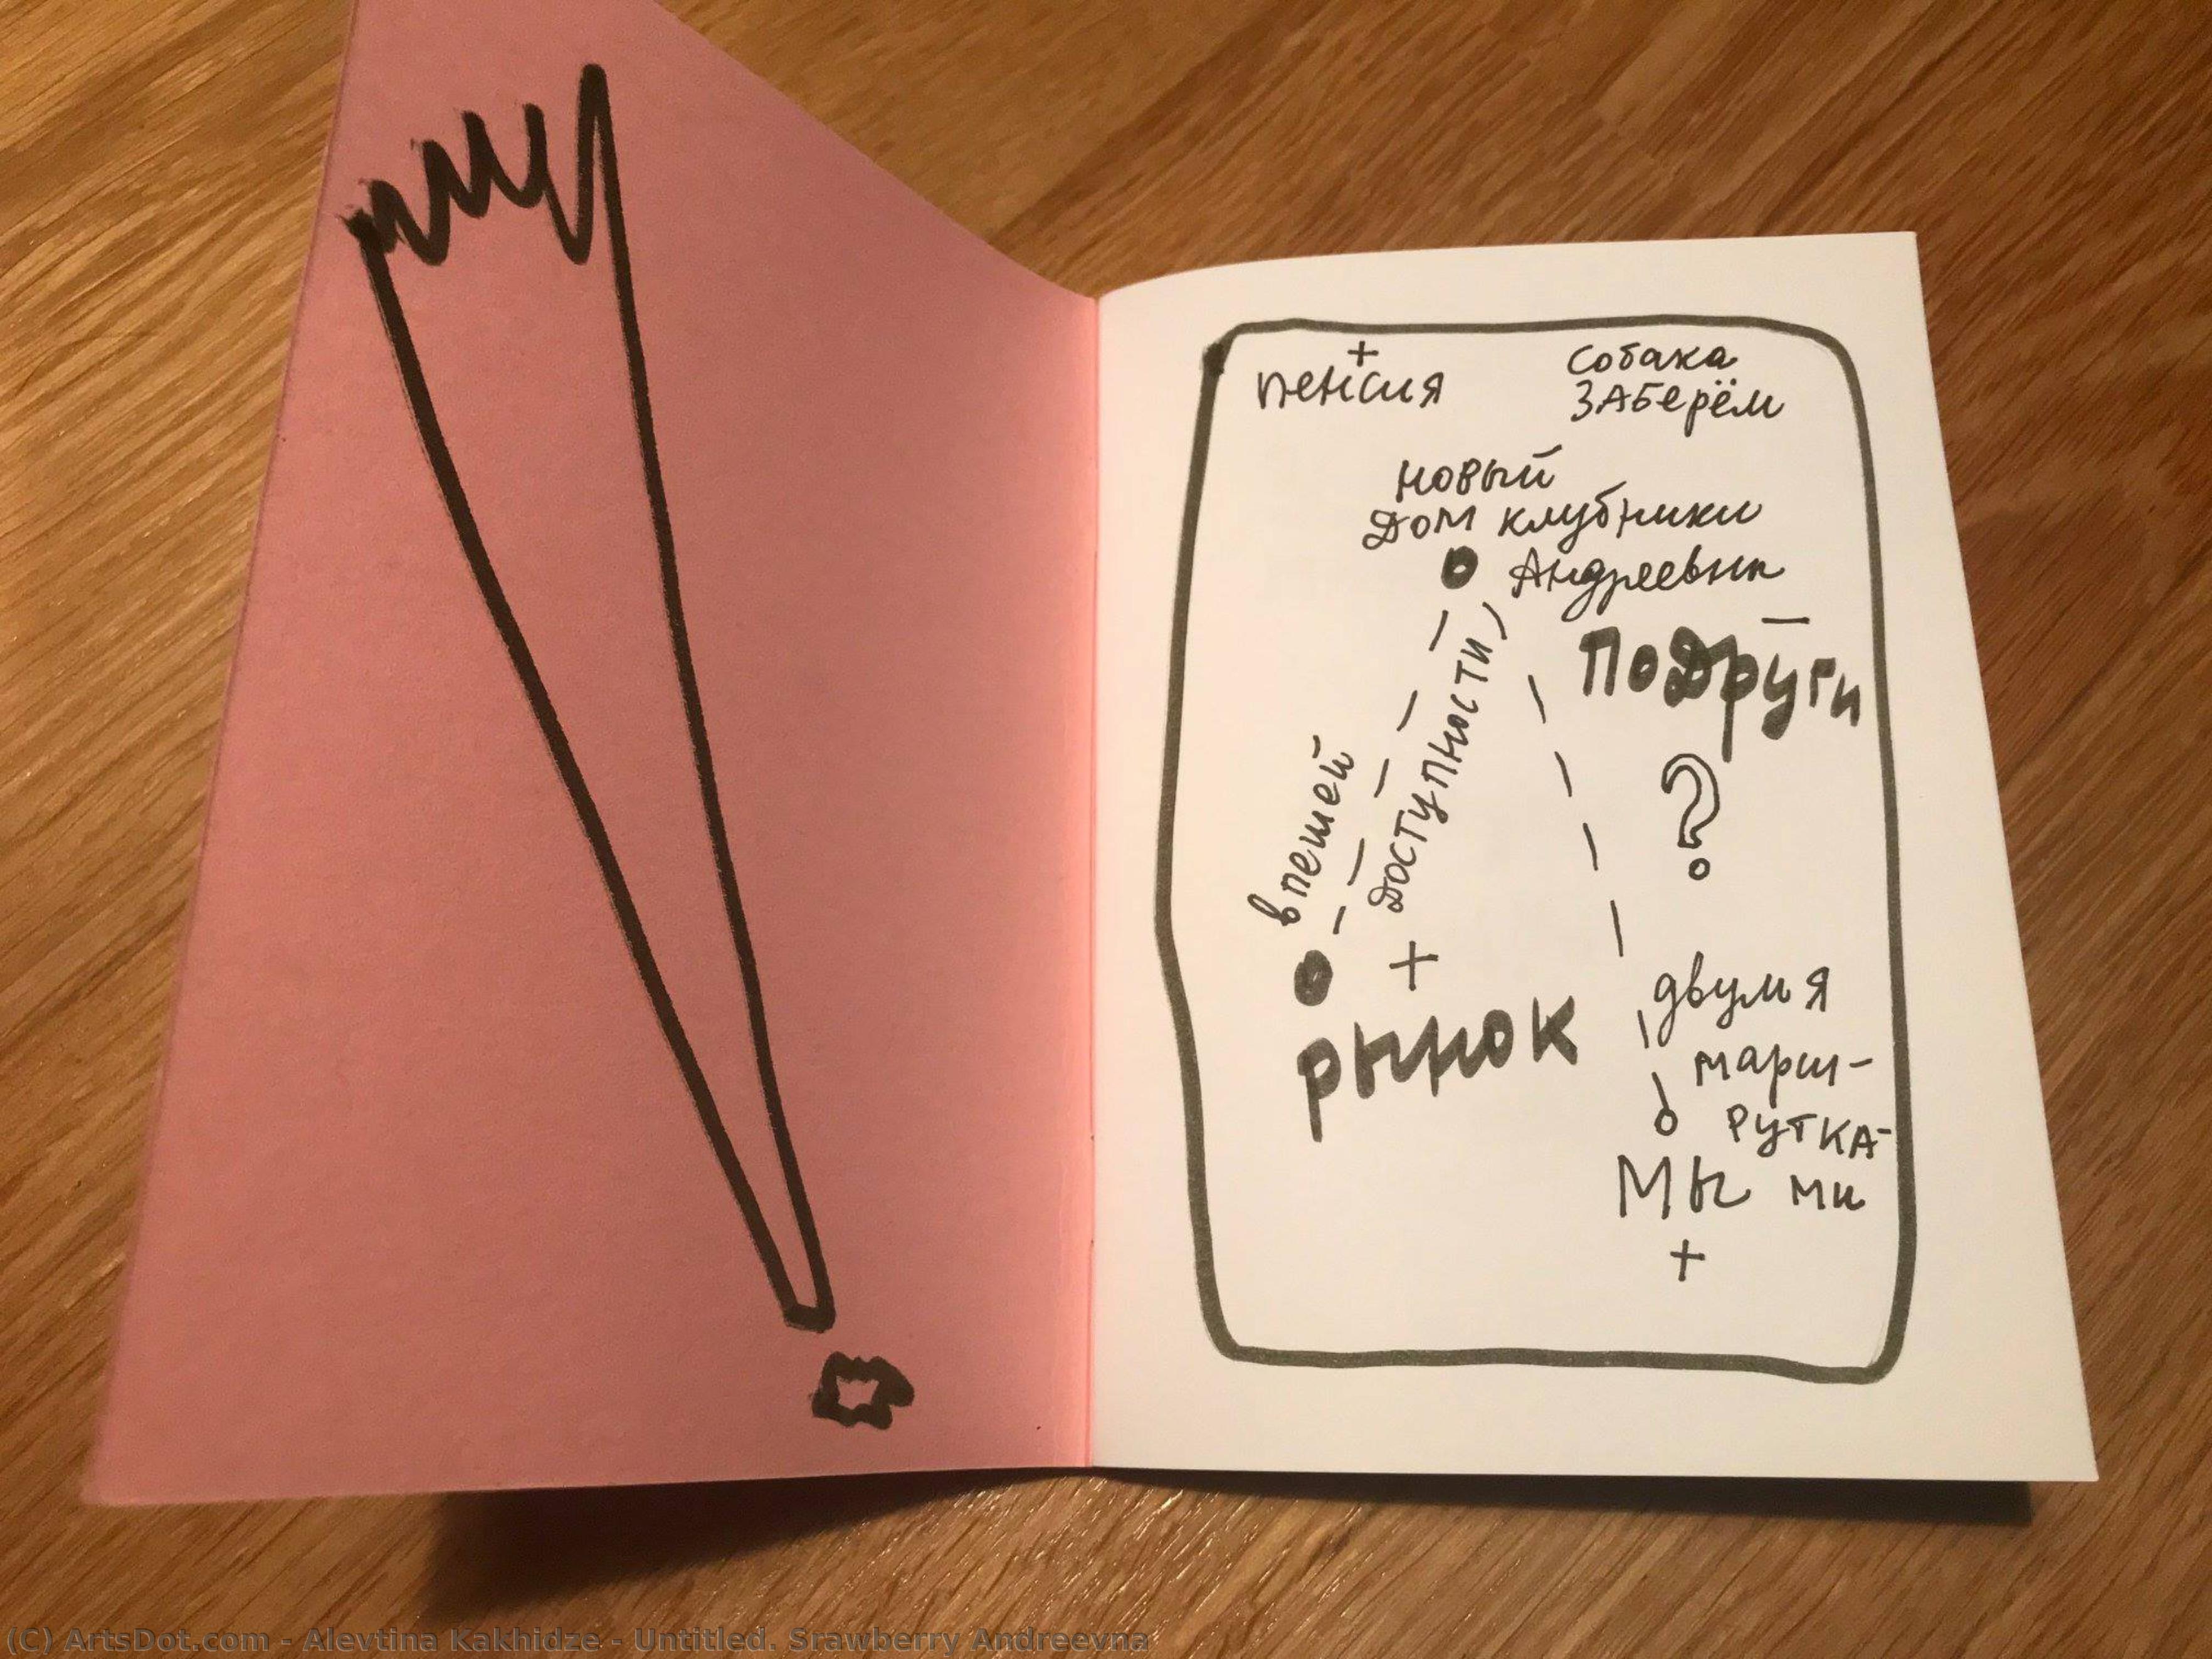 +
пенсия
собака
ЗАБерём
новый
Дом клубники
Андреевны
в пешей
доступности
—
Подруги
?
+
рынок
двумя
марш-
рутка-
ми
мы
+
(C) ArtsDot.com - Alevtina Kakhidze - Untitled. Srawberry Andreevna